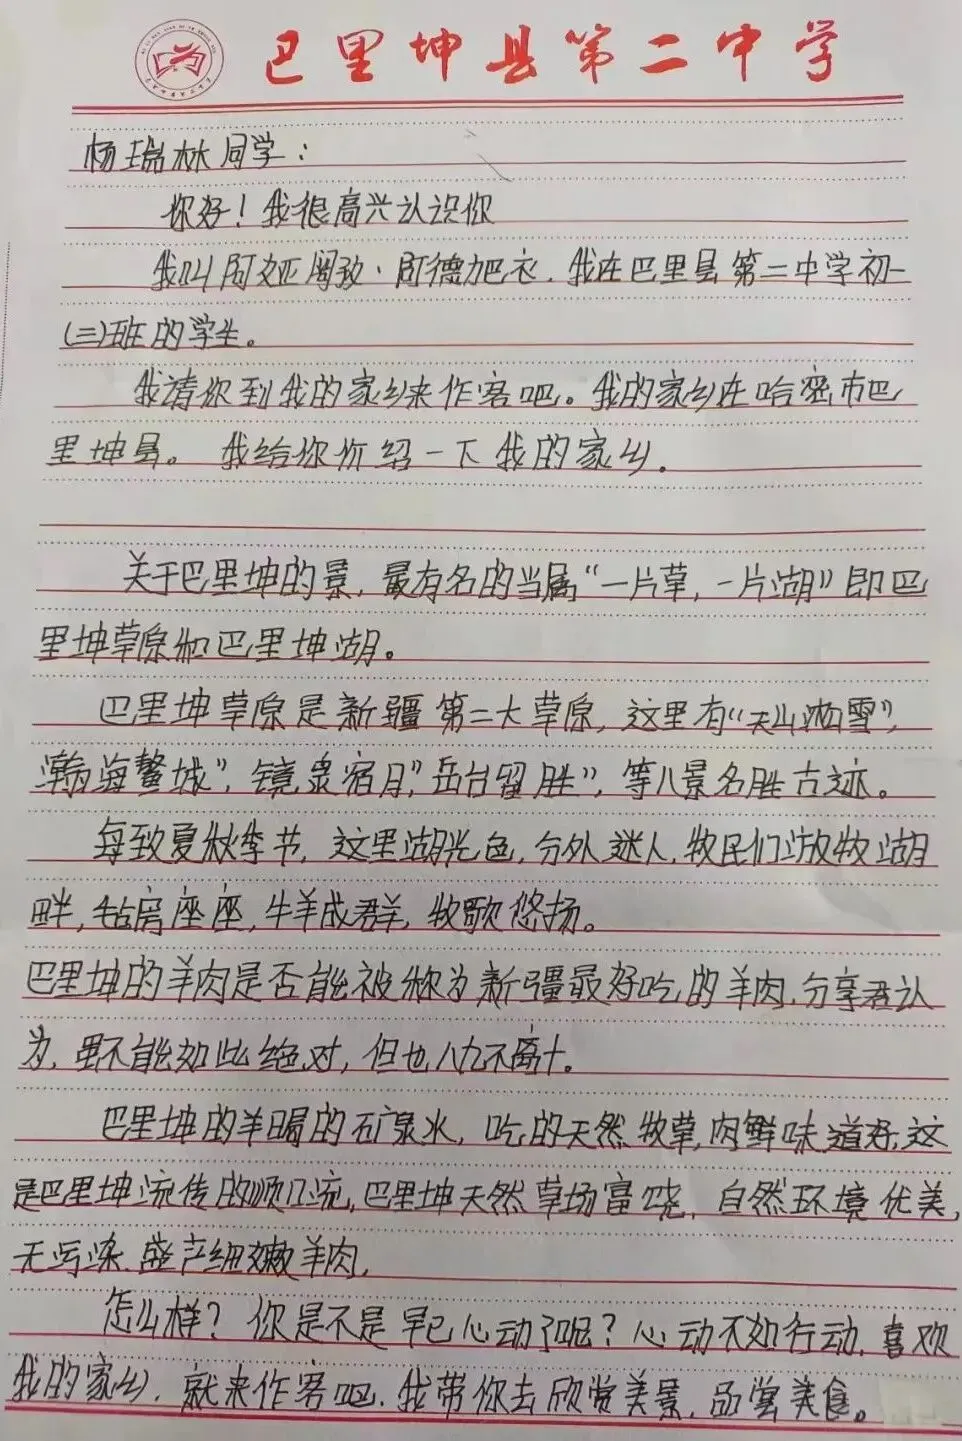 巴里坤县第二中学
杨瑞林同学：
你好！我很高兴认识你
我叫阿娅·阿德加巴衣．我在巴里县第二中学初一
(三)班的学生。
我请你到我的家乡来作客吧。我的家乡在哈密市巴
里坤县。我给你价绍一下我的家乡．
关于巴里坤的景，最有名的当属“一片草，一片湖”即巴
里坤草原和巴里坤湖。
巴里坤草原是新疆第二大草原，这里有“天山雪”，
瀚海鳌城”，镜泉宿月”，岳台留胜”，等八景名胜古迹。
每致夏秋季节，这里湖光色，分外迷人，牧民们游放牧湖
畔，毡房座座，牛羊成群，牧歌悠扬。
巴里坤的羊肉是否能被称为新疆最好吃的羊肉，分享君认
为，虽不能如此绝对，但也八九不离十。
巴里坤的羊喝的矿泉水，吃的天然牧草，肉鲜味道好，这
是巴里坤流传的顺口流，巴里坤天然草场富饶，自然环境优美，
无污染，盛产细嫩羊肉，
怎么样？你是不是早已心动了呢？心动不如行动，喜欢
我的家乡，就来作客吧，我带你去欣赏美景，品尝美食。